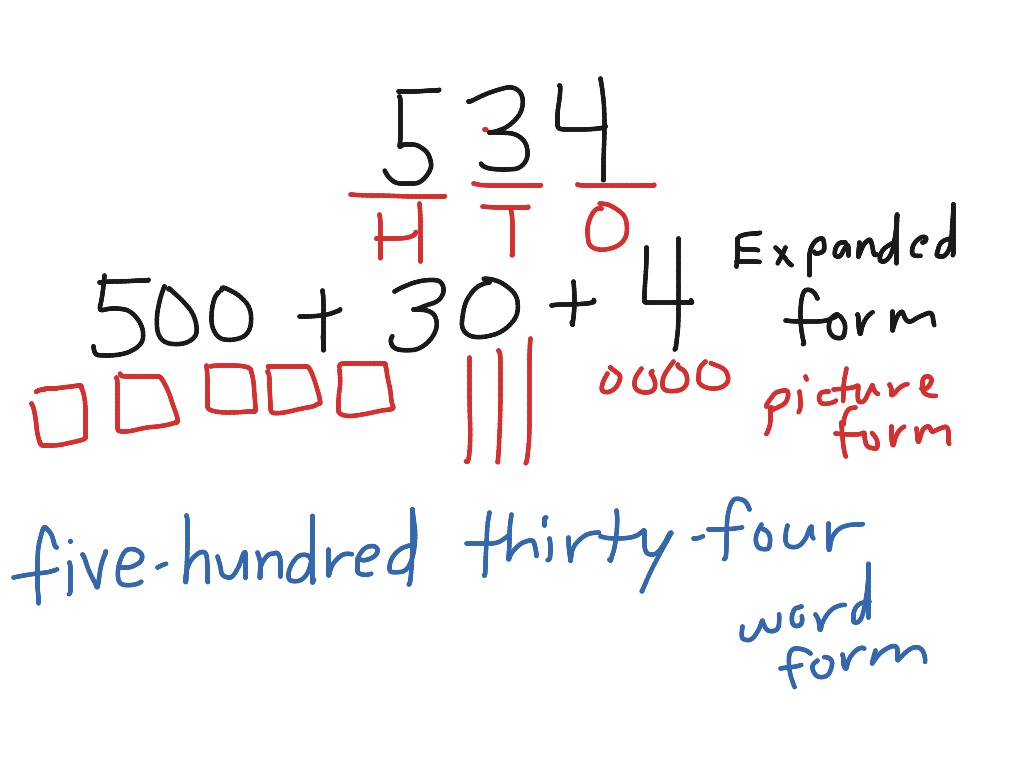 534
H T O
500 + 30 + 4
Expanded
form
picture
form
five-hundred thirty-four
word
form